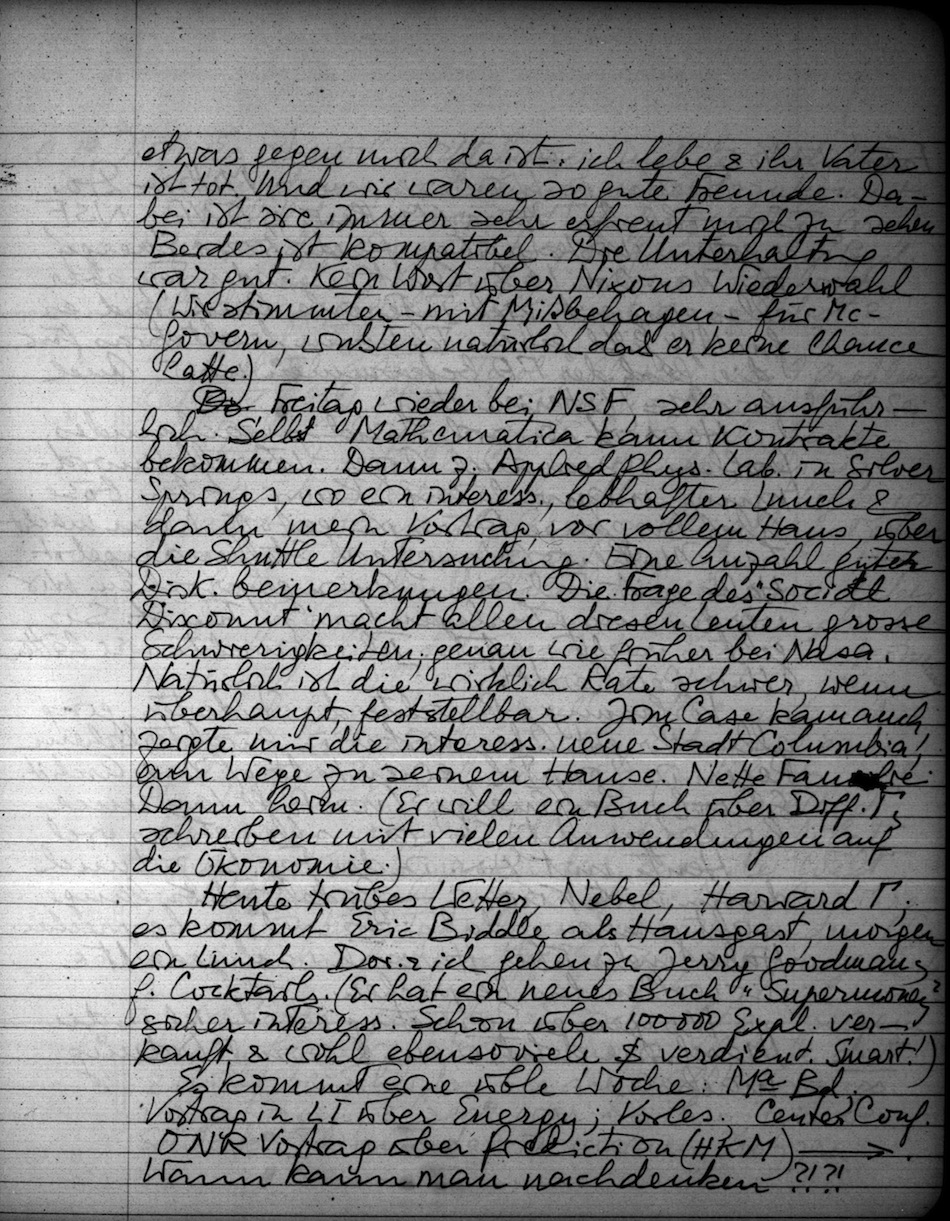 etwas gegen mich da ist. ich lebe & ihr Vater
ist tot. Und wir waren so gute Freunde. Da-
bei ist sie immer sehr erfreut mich zu sehen
Beides ist kompatibel. Die Unterhaltung
war gut. Kein Wort über Nixons Wiederwahl
(Wir stimmten – mit Mißbehagen – für Mc-
Govern, wußten natürlich daß er keine Chance
hatte.)
Freitag wieder bei NSF, sehr ausführ-
lich. Selbst Mathematica kann Kontrakte
bekommen. Dann z. Applied Phys. Lab. in Silver
Springs, wo ein interess., lebhafter Lunch &
dann mein Vortrag, vor vollem Haus, über
die Shuttle Untersuchung. Eine Anzahl guter
Disk. bemerkungen. Die Frage des "Social
Discount" macht allen diesen Leuten grosse
Schwierigkeiten, genau wie früher bei Nasa.
Natürlich ist die wirklich Rate schwer, wenn
überhaupt, feststellbar. Jim Case kam auch,
zeigte mir die interess. neue Stadt Columbia,
am Wege zu seinem Hause. Nette Familie
Dann heim. (Er will ein Buch über Diff. Γ,
schreiben mit vielen Anwendungen auf
die Ökonomie.)
Heute trübes Wetter, Nebel, Harvard Γ;
es kommt Eric Biddle als Hausgast, morgen
ein Lunch. Dor. & ich gehen zu Jerry Goodmans
f. Cocktails. (Er hat ein neues Buch "Supermoney"
sicher interess. Schon über 100 000 Expl. ver-
kauft & wohl ebensoviele $ verdient. Smart!)
Es kommt eine üble Woche: Ma Bd,
Vortrag in LI über Energy; Vorles. Center Conf.
ONR Vortrag über Prediction (HKM) ⟶.
Wann kann man nachdenken ?!?!